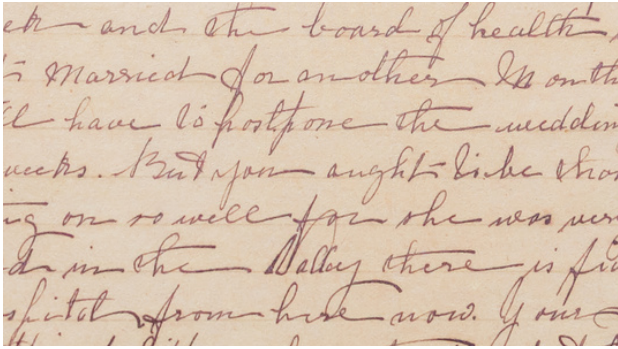 and the board of health
married for another Month
have to postpone the wedding
weeks. But you aught to be
on so well for she was ver
in the Valley there is
from here now. Your